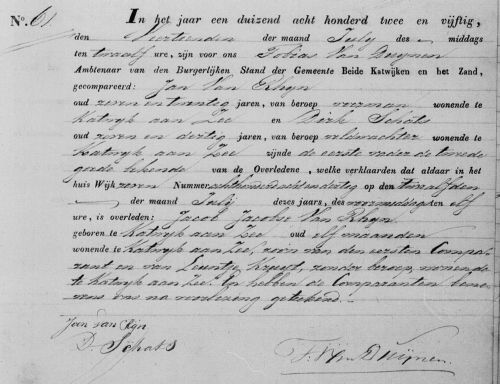 No. 61
In het jaar een duizend acht honderd twee en vijftig,
den Veertienden der maand July des middags
ten twaalf ure, zijn voor ons Tobias Van Duijnen
Ambtenaar van den Burgerlijken Stand der Gemeente Beide Katwijken en het Zand,
gecompareerd: Jan Van Rhyn
oud zeven en twintig jaren, van beroep wonende te
Katwyk aan Zee en Dirk Schats
oud zeven en dertig jaren, van beroep veldwachter wonende te
Katwyk aan Zee, zijnde de eerste vader de tweede
goede bekende van de Overledene, welke verklaarden dat aldaar in het
huis Wijk zeven Nummer achthonderd acht en dertig op den twaalfden
der maand July dezes jaars, des voormiddags ten elf
ure, is overleden: Jacob Jacobus Van Rhyn
geboren te Katwyk aan Zee oud elf maanden
wonende te Katwyk aan Zee, zoon van den eersten Compa,,
rant en van Leuntje Kruyt, zonder beroep, wonende
te Katwyk aan Zee. En hebben de Comparanten bene,,
vens ons na voorlezing getekend.
Jan van Rijn
D. Schats
T. Van Duijnen